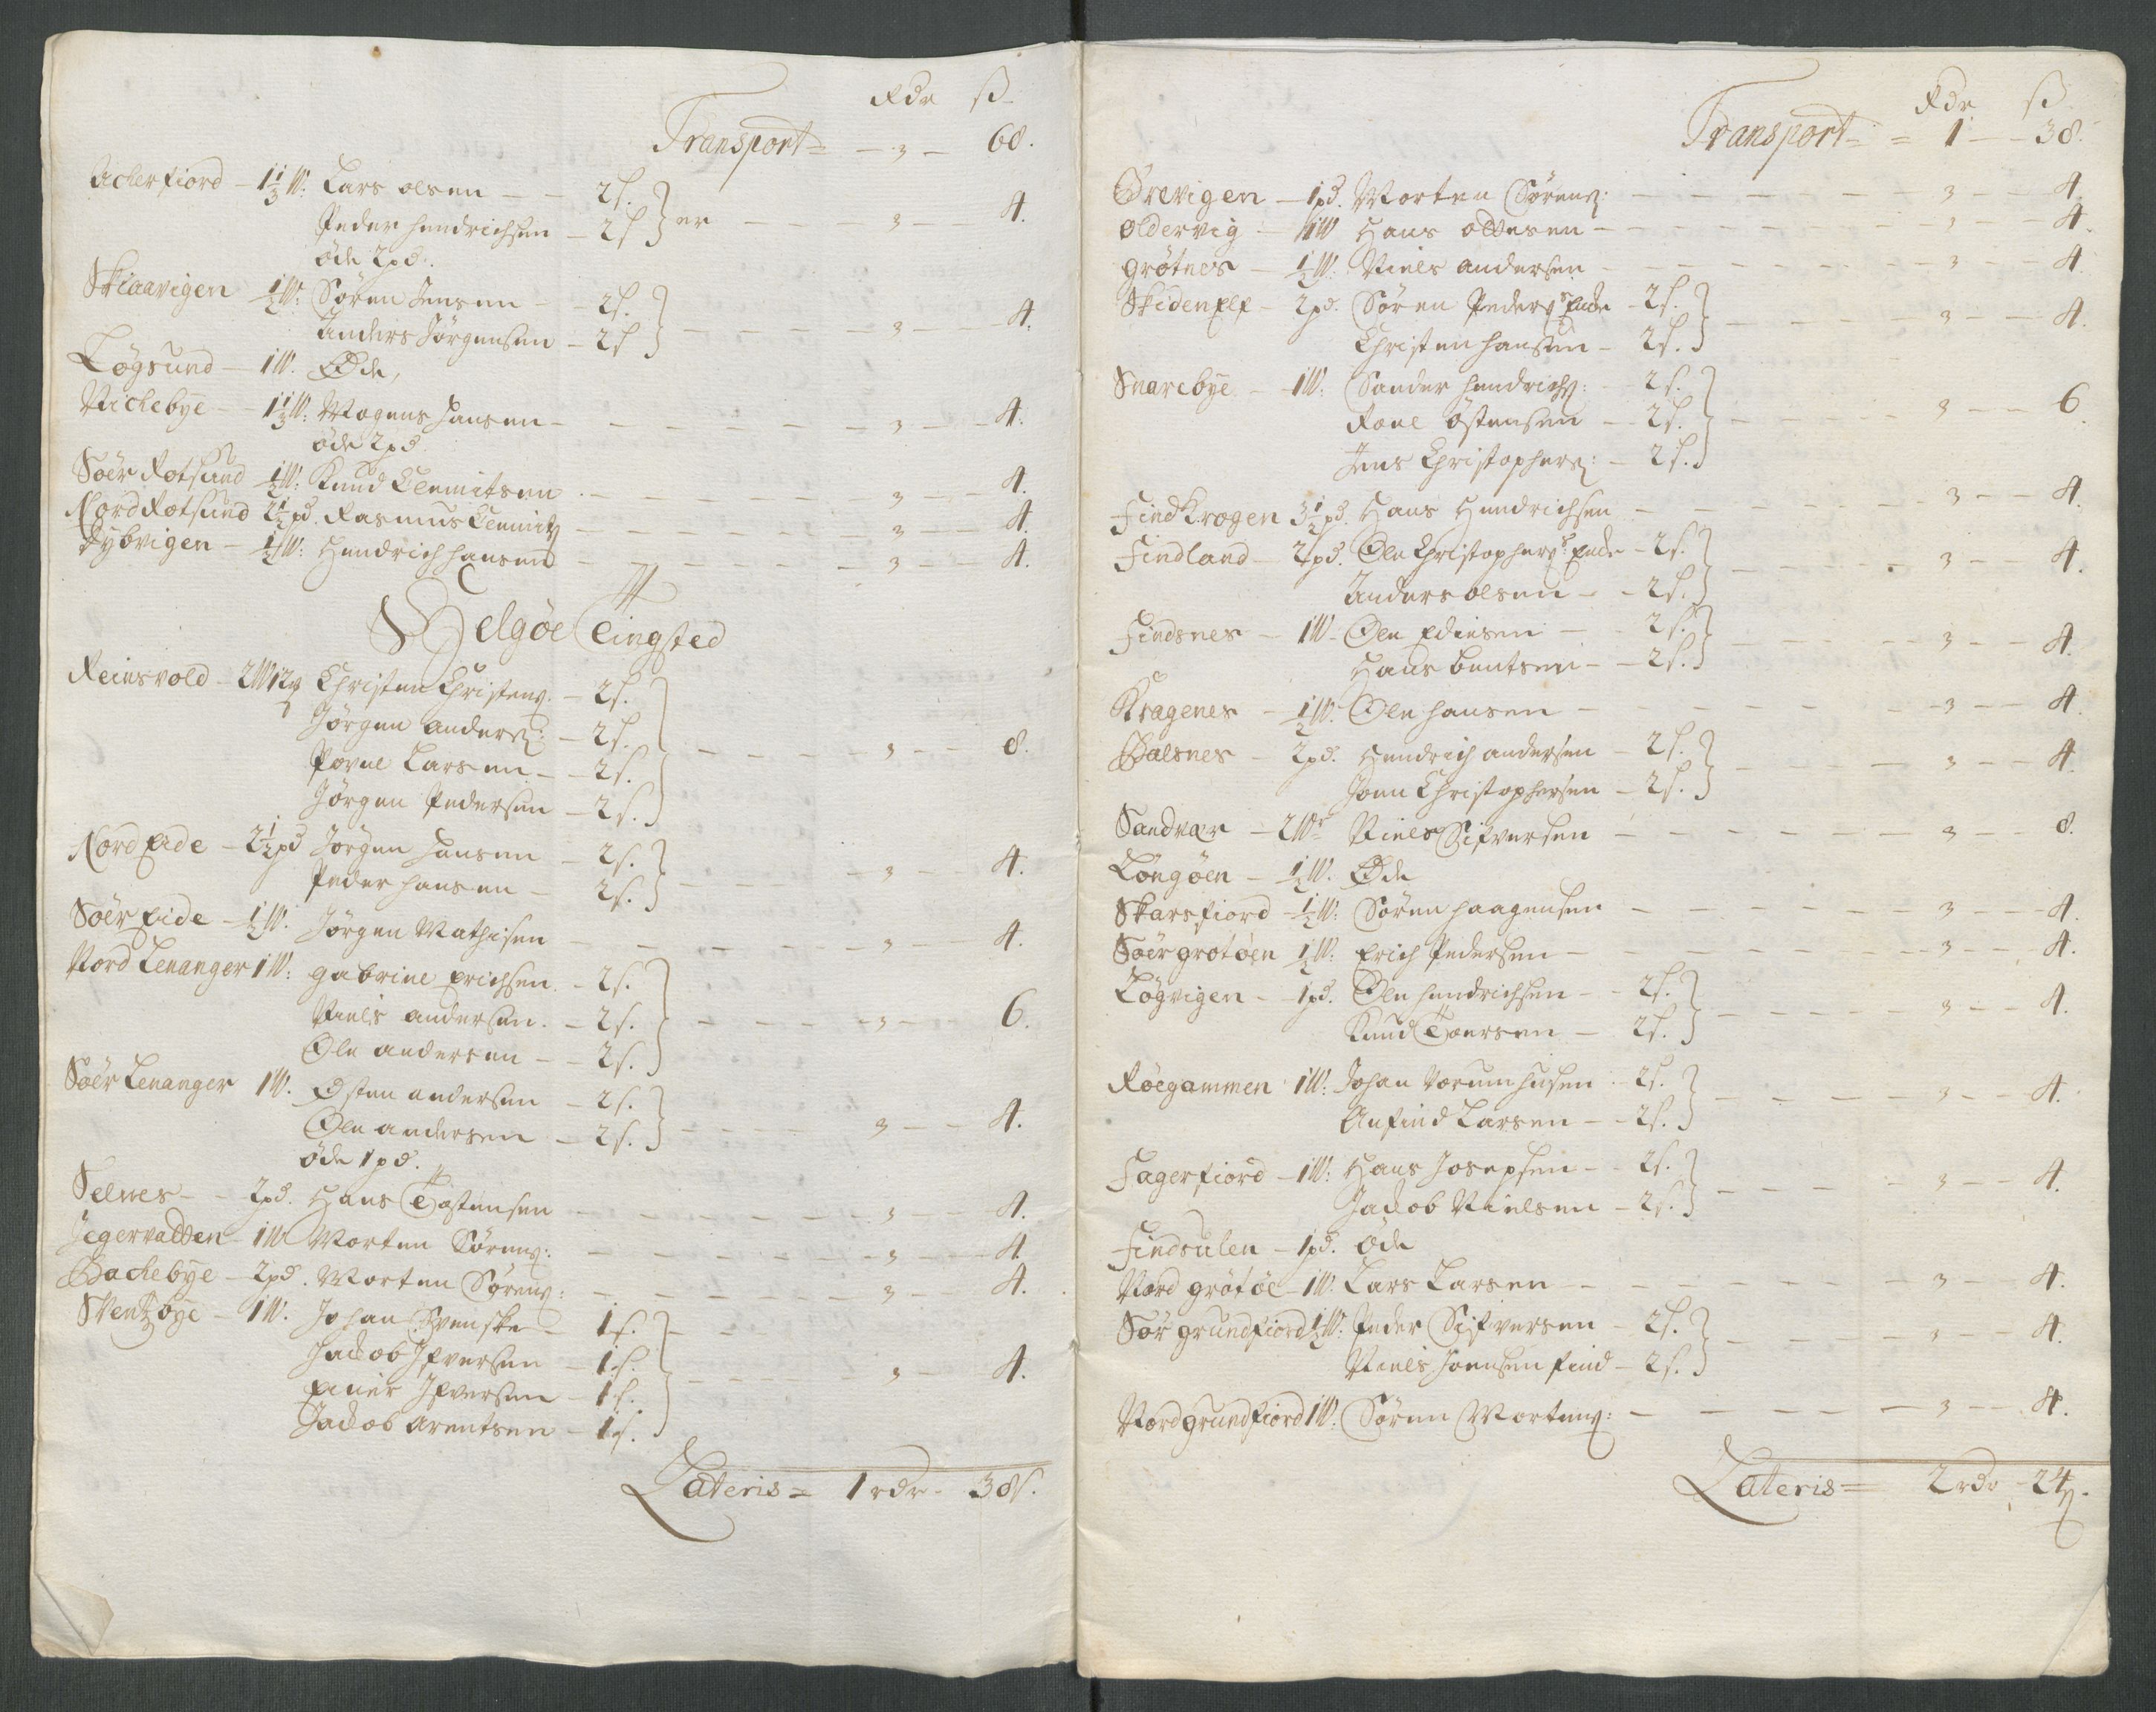 Rdr ß
Transport = — 3 — 68.
Ackerfiord — 1 1/3 W: Lars olsen — — 2 s.
Peder Hendrichsen — 2 s } er — 3 — 4.
öde 2 pd.
Skiaavigen 1/2 W: Sören Jensen — 2 s.
Anders Jörgensen — 2 s } — 3 — 4.
Lögsund — 1 W. Öde,
Vickebye — 1 1/3 W: Mogens Hansen — 3 — 4.
öde 2 pd
Söer Rotsund 1/2 W: Knud Clemitsen — 3 — 4.
Nord Rotsund 2 1/2 pd. Rasmus Clemitz — 3 — 4.
Dybvigen — 1/2 W: Hendrich Hansen — 3 — 4.
Helgöe Tingsted
Reinsvold — 2 W 12 Christen Christens. — 2 s.
Jörgen Anders: — 2 s.
Povel Larsen — 2 s. } — 3 — 8.
Jörgen Pedersen — 2 s.
Nord Eide — 2 1/2 pd Jörgen Hansen — 2 s.
Peder Hansen — 2 s. } — 3 — 4.
Söer Eide — 1/2 W. Jörgen Mathisen — 3 — 4.
Nord Lenanger 1 W: gabriel Erichsen — 2 s.
Niels andersen — 2 s. } — 3 — 6.
Ole andersen — 2 s.
Söer Lenanger 1 W. Östen andersen — 2 s.
Ole andersen — 2 s. } — 3 — 4.
öde 1 pd.
Selnes — 2 pd. Hans Tostensen — 3 — 4.
Jegervatten — 1 W Morten Sörens: — 3 — 4.
Backebye — 2 pd. Morten Sörens: — 3 — 4.
Svendsbye — 1 W. Johan Svenske — 1 s.
Jackob Ifversen — 1 s.
Einer Ifversen — 1 s. } — 3 — 4.
Jackob Arentsen — 1 s.
Lateris = 1 rdr — 38 s.
Rdr ß
Transport = = 1 — 38.
Örevigen — 1 pd. Morten Sörens: — 3 — 4.
Oldervig — 1 W Hans Ottesen — 3 — 4.
Grötnes — 1/2 W: Niels andersen — 3 — 4.
Skidenelf — 2 pd. Sören Peders: Encke — 2 s.
Christen Hansen — 2 s. } — 3 — 4.
Snarebye — 1 W: Sander Hendrichs: — 2 s.
Roel Östensen — 2 s. } — 3 — 6
Jens Christophers: — 2 s.
Findkrogen 3 1/2 pd. Hans Hendrichsen — 3 — 4.
Findland — 2 pd. Ole Christophers: Encke — 2 s.
Anders olsen — 2 s. } — 3 — 4.
Findsnes — 1 W — Ole Edisen — 2 s.
Hans bentsen — 2 s. } — 3 — 4.
Kragenes — 1/2 W. Ole Hansen — 3 — 4.
Balsnes — 2 pd. Hendrich andersen — 2 s.
Joen Christophersen — 2 s. } — 3 — 4.
Sandvær — 2 Wr Niels Sifversen — 3 — 8.
Löngöen — 1/2 W. Öde
Skarsfiord — 1/2 W: Sören Haagensen — 3 — 4.
Söer grotöen 1/2 W: Erich Pedersen — 3 — 4.
Lögvigen — 1 pd. Ole Hendrichsen — 2 s.
Knud Toersen — 2 s. } — 3 — 4.
Röegammen 1 W: Johan Værumhusen — 2 s.
Anfind Larsen — 2 s. } — 3 — 4.
Fagerfiord — 1 W: Hans Josephsen — 2 s.
Jackob Nielsen — 2 s. } — 3 — 4.
Findsulen — 1 pd. Öde
Nord grötöe 1 W: Lars Larsen — 3 — 4.
Sör grundfiord 1/2 W: Peder Sifversen — 2 s.
Niels Joensen find — 2 s. } — 3 — 4.
Nord grundfiord 1 W: Sören Mortens: — 3 — 4.
Lateris = 2 rdr — 24 s.